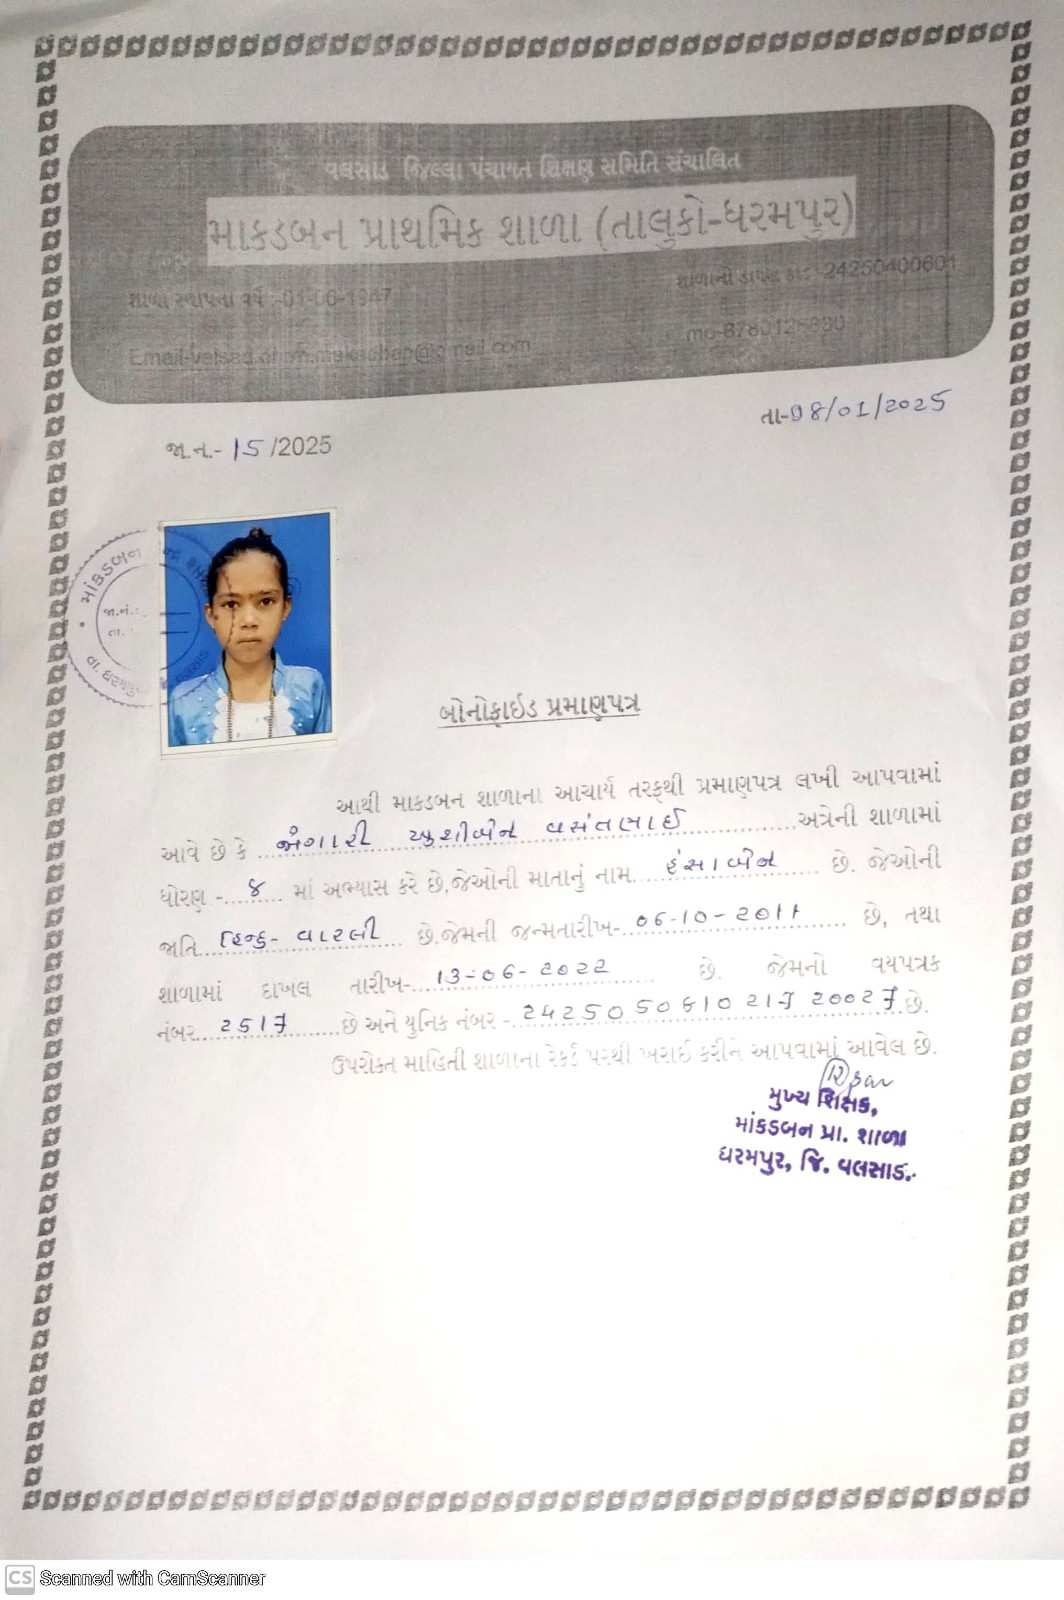 વલસાડ જિલ્લા પંચાયત શિક્ષણ સમિતિ સંચાલિત
માકડબન પ્રાથમિક શાળા (તાલુકો-ધરમપુર)
શાળા સ્થાપના વર્ષ :-01-06-1947
શાળાનો ડાયસ કોડ 24250400601
mo-
તા-08/01/2025
જા.ન.- 15 /2025
માંકડબન
જા.નં.:
તા.
બોનોફાઈડ પ્રમાણપત્ર
આથી માકડબન શાળાના આચાર્ય તરફથી પ્રમાણપત્ર લખી આપવામાં
આવે છે કે જંગારી ખુશીબેન વસંતભાઈ અત્રેની શાળામાં
ધોરણ - ૪ માં અભ્યાસ કરે છે,જેઓની માતાનું નામ હંસાબેન છે. જેઓની
જાતિ હિન્દુ- વારલી છે.જેમની જન્મતારીખ- 06-10-2011 છે, તથા
શાળામાં દાખલ તારીખ- 13-06-2022 છે. જેમનો વયપત્રક
નંબર 2517 છે અને યુનિક નંબર - 242505061021720027 છે.
ઉપરોક્ત માહિતી શાળાના રેકર્ડ પરથી ખરાઈ કરીને આપવામાં આવેલ છે.
મુખ્ય શિક્ષક,
માંકડબન પ્રા. શાળા
ધરમપુર, જિ. વલસાડ.
CS Scanned with CamScanner